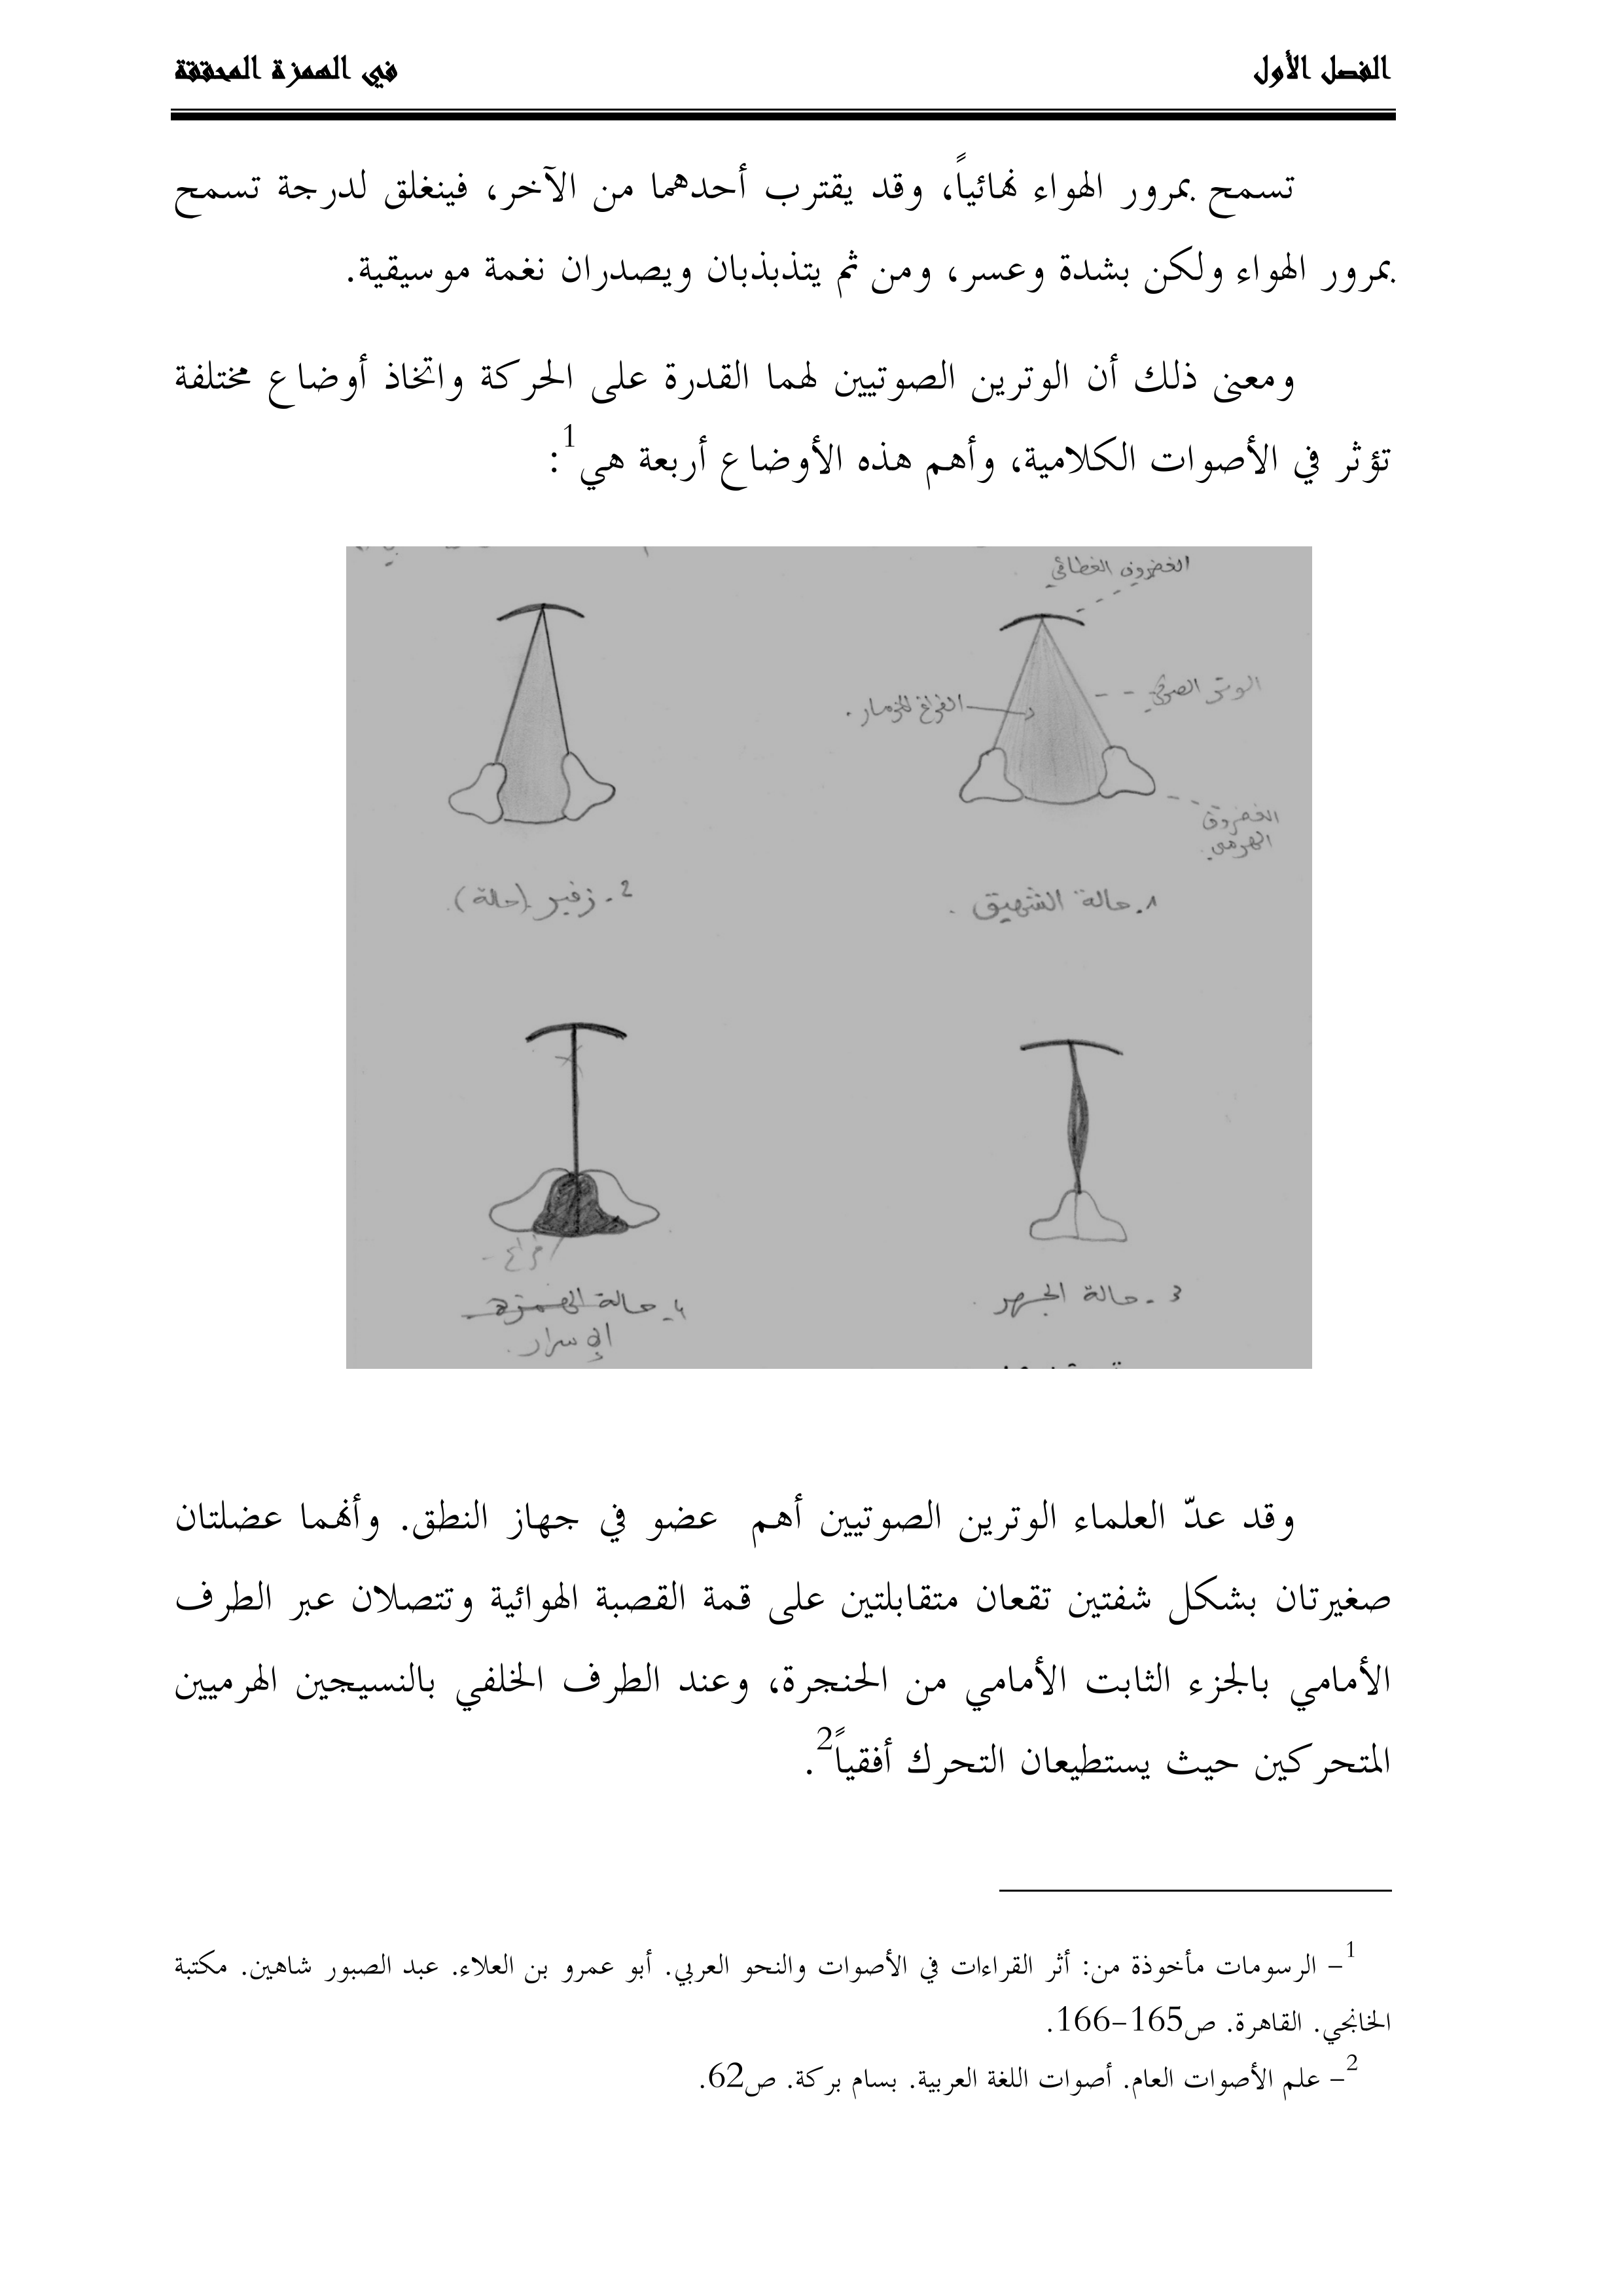 الفصل الأول
في الهمزة المحققة
تسمح بمرور الهواء نهائياً، وقد يقترب أحدهما من الآخر، فينغلق لدرجة تسمح
بمرور الهواء ولكن بشدة وعسر، ومن ثم يتذبذبان ويصدران نغمة موسيقية.
ومعنى ذلك أن الوترين الصوتيين لهما القدرة على الحركة واتخاذ أوضاع مختلفة
تؤثر في الأصوات الكلامية، وأهم هذه الأوضاع أربعة هي1:
الوتر الصوتي
الفراغ المزمار.
الغضروف
الهرمي.
1. حالة الشهيق.
2. زفير (حالة)
فراغ
3. حالة الجهر
4. حالة الهمزة
الإسرار.
وقد عدّ العلماء الوترين الصوتيين أهم عضو في جهاز النطق. وأنهما عضلتان
صغيرتان بشكل شفتين تقعان متقابلتين على قمة القصبة الهوائية وتتصلان عبر الطرف
الأمامي بالجزء الثابت الأمامي من الحنجرة، وعند الطرف الخلفي بالنسيجين الهرميين
المتحركين حيث يستطيعان التحرك أفقياً2.
1– الرسومات مأخوذة من: أثر القراءات في الأصوات والنحو العربي. أبو عمرو بن العلاء. عبد الصبور شاهين. مكتبة
الخانجي. القاهرة. ص165–166.
2– علم الأصوات العام. أصوات اللغة العربية. بسام بركة. ص62.